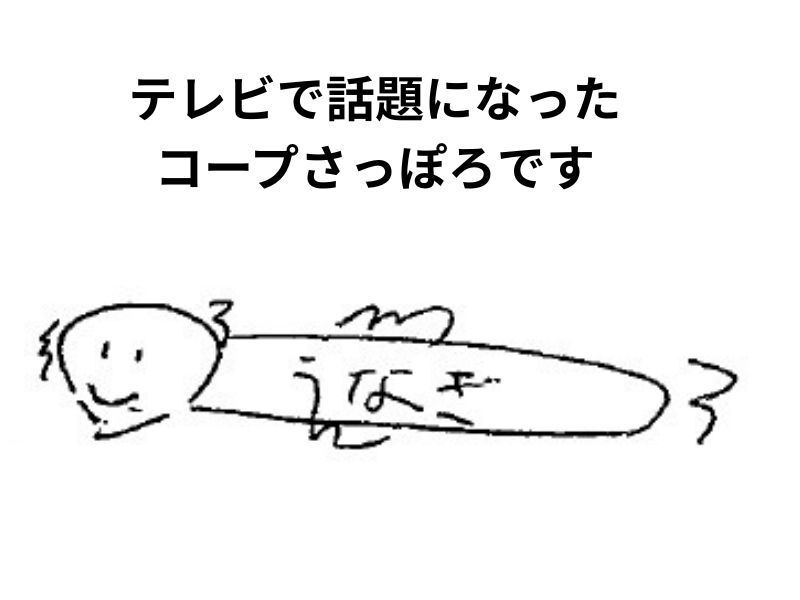 テレビで話題になった
コープさっぽろです
うなぎ